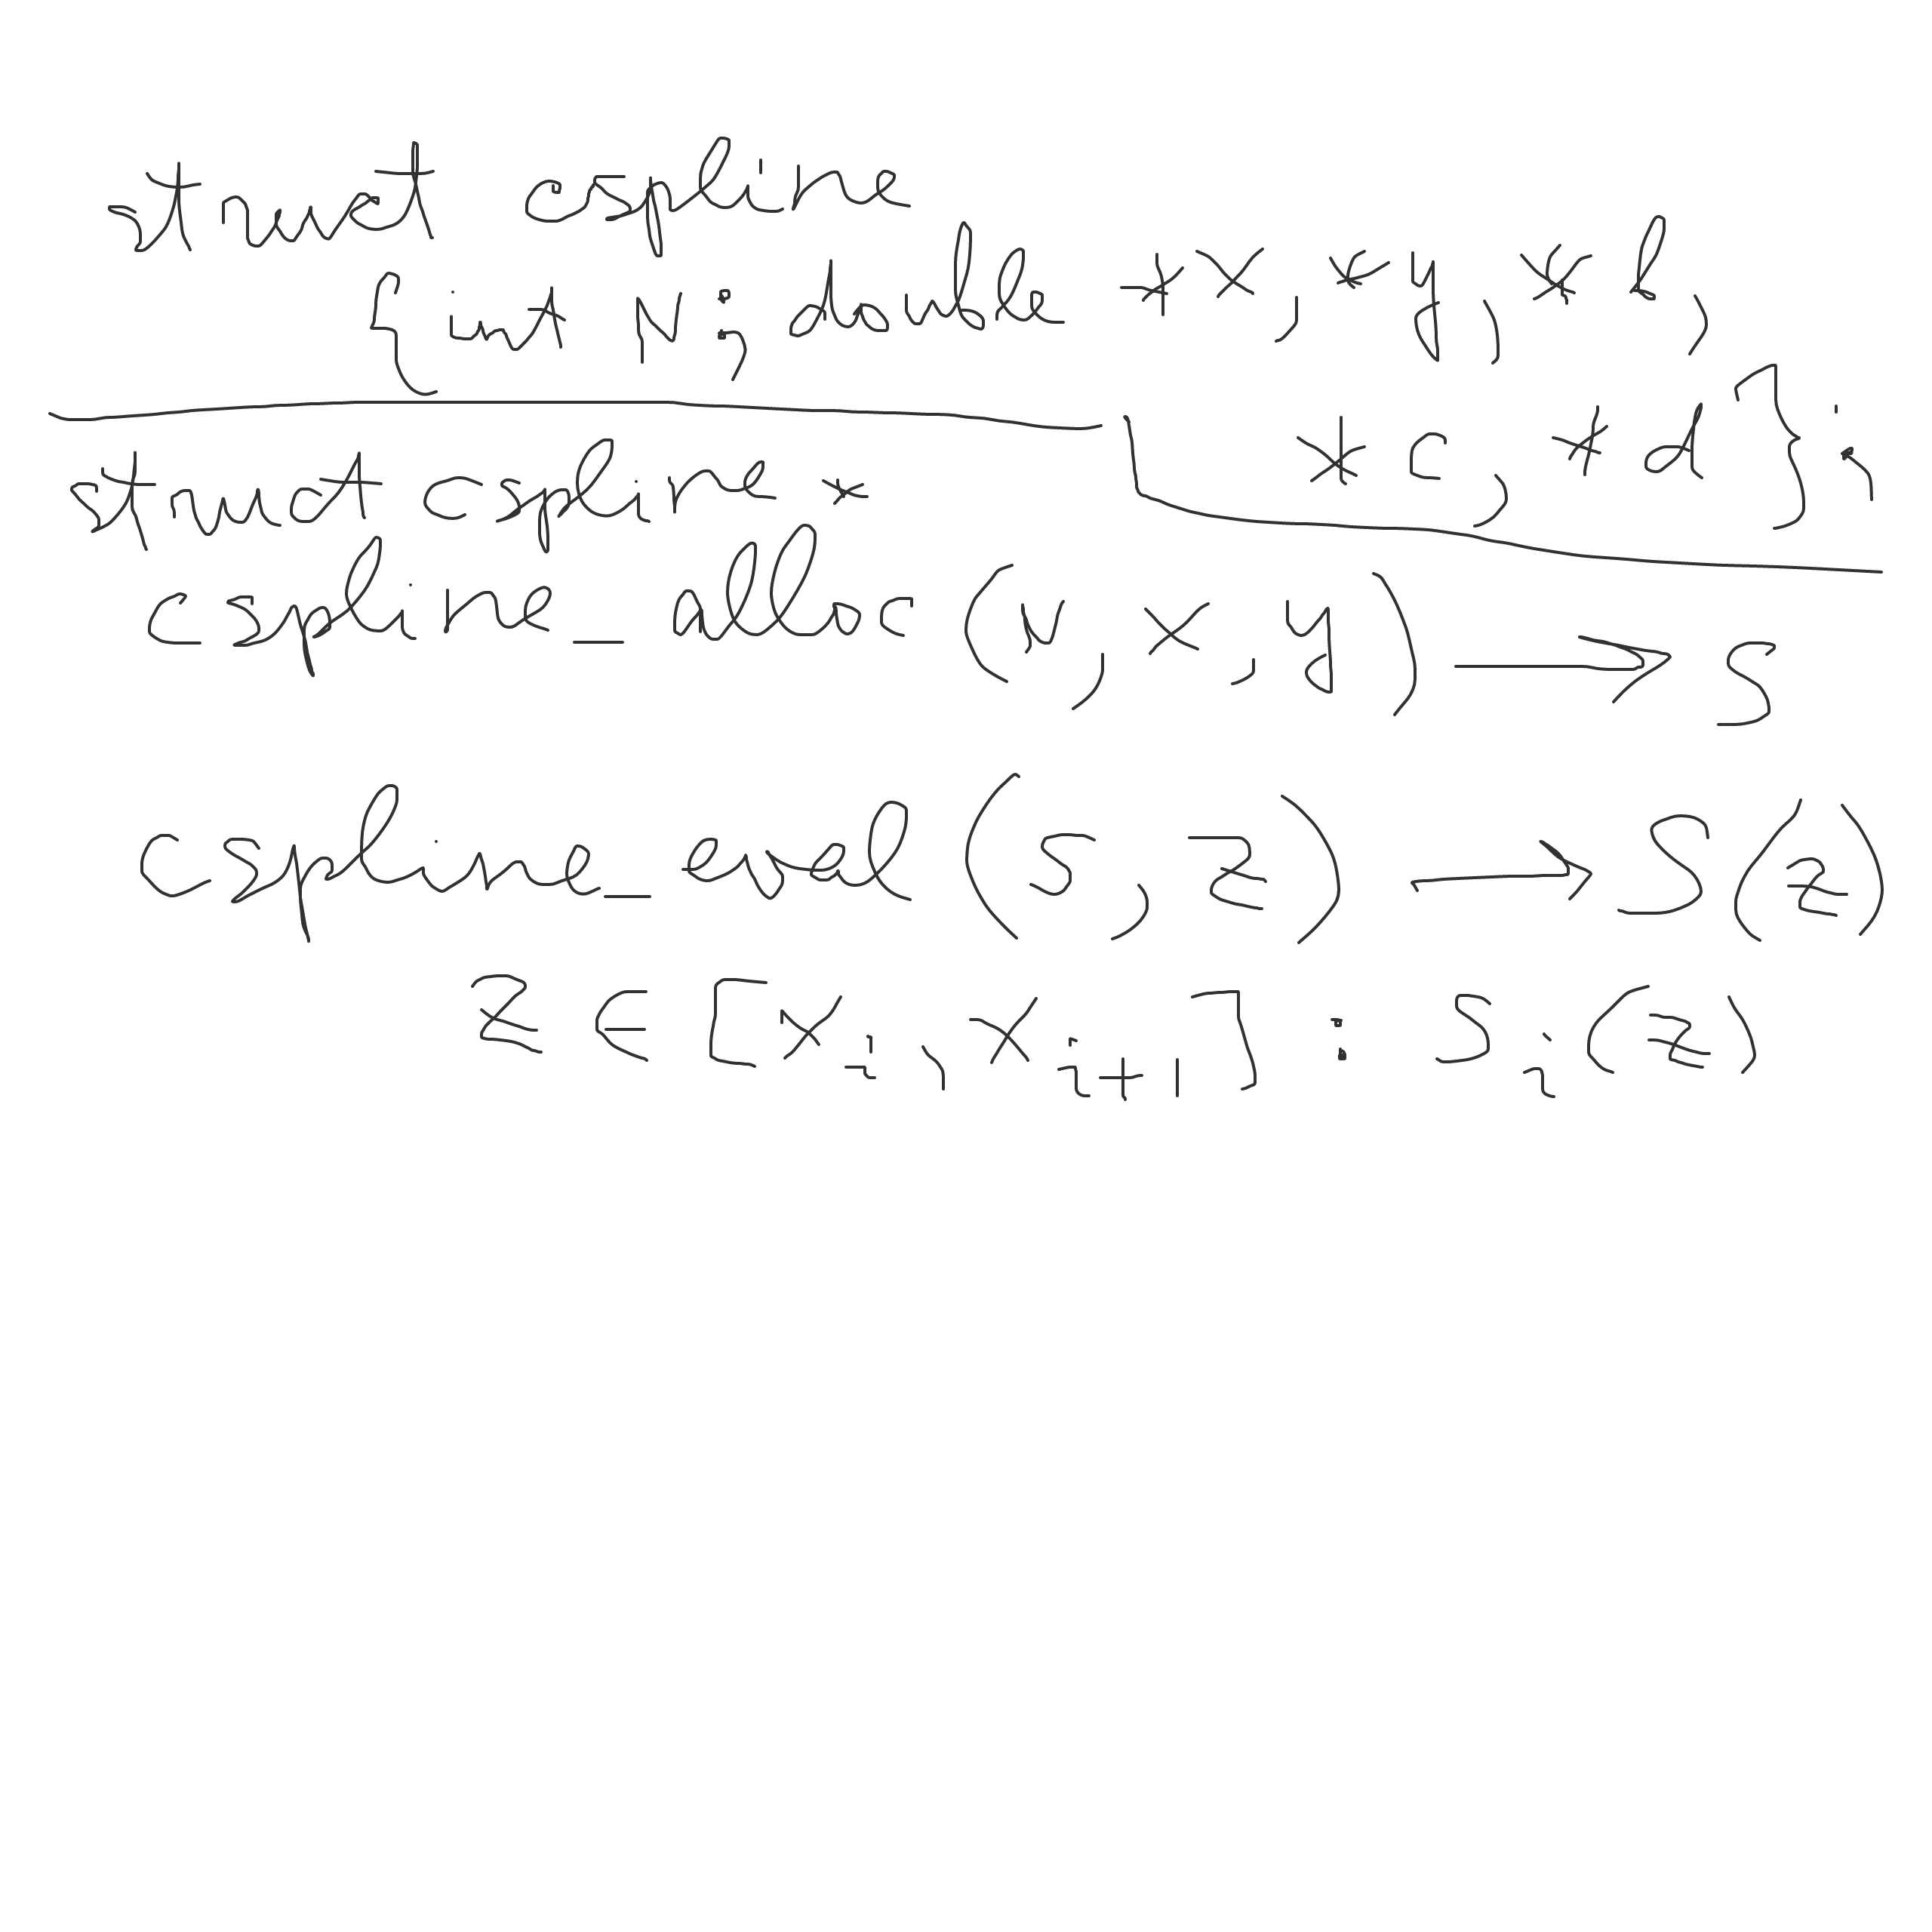 struct cspline
{int N; double *x, *y, *b,
*c, *d};
struct cspline *
cspline_alloc (N, x, y) → S
cspline_eval (S, z) → S(z)
z ∈ [x_i, x_{i+1}] : S_i(z)